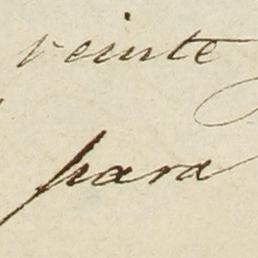 veinte
para